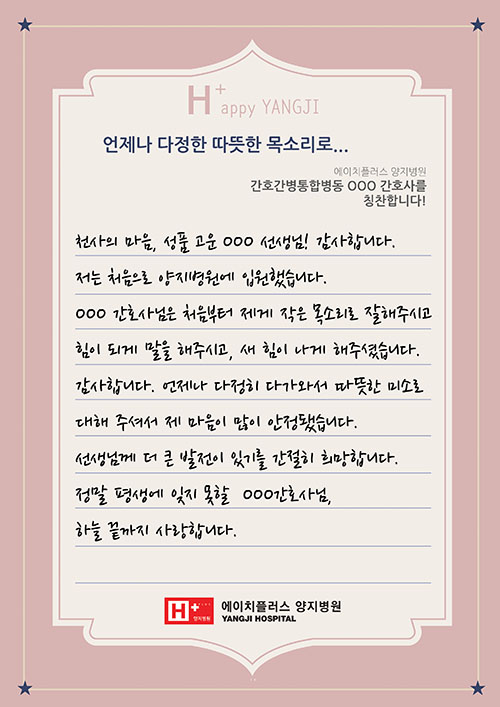 H+appy YANGJI
언제나 다정한 따뜻한 목소리로...
에이치플러스 양지병원
간호간병통합병동 OOO 간호사를
칭찬합니다!
천사의 마음, 성품 고운 OOO 선생님! 감사합니다.
저는 처음으로 양지병원에 입원했습니다.
OOO 간호사님은 처음부터 제게 작은 목소리로 잘해주시고
힘이 되게 말을 해주시고, 새 힘이 나게 해주셨습니다.
감사합니다. 언제나 다정히 다가와서 따뜻한 미소로
대해 주셔서 제 마음이 많이 안정됐습니다.
선생님께 더 큰 발전이 있기를 간절히 희망합니다.
정말 평생에 잊지 못할 OOO간호사님,
하늘 끝까지 사랑합니다.
H+ 양지병원
에이치플러스 양지병원
YANGJI HOSPITAL